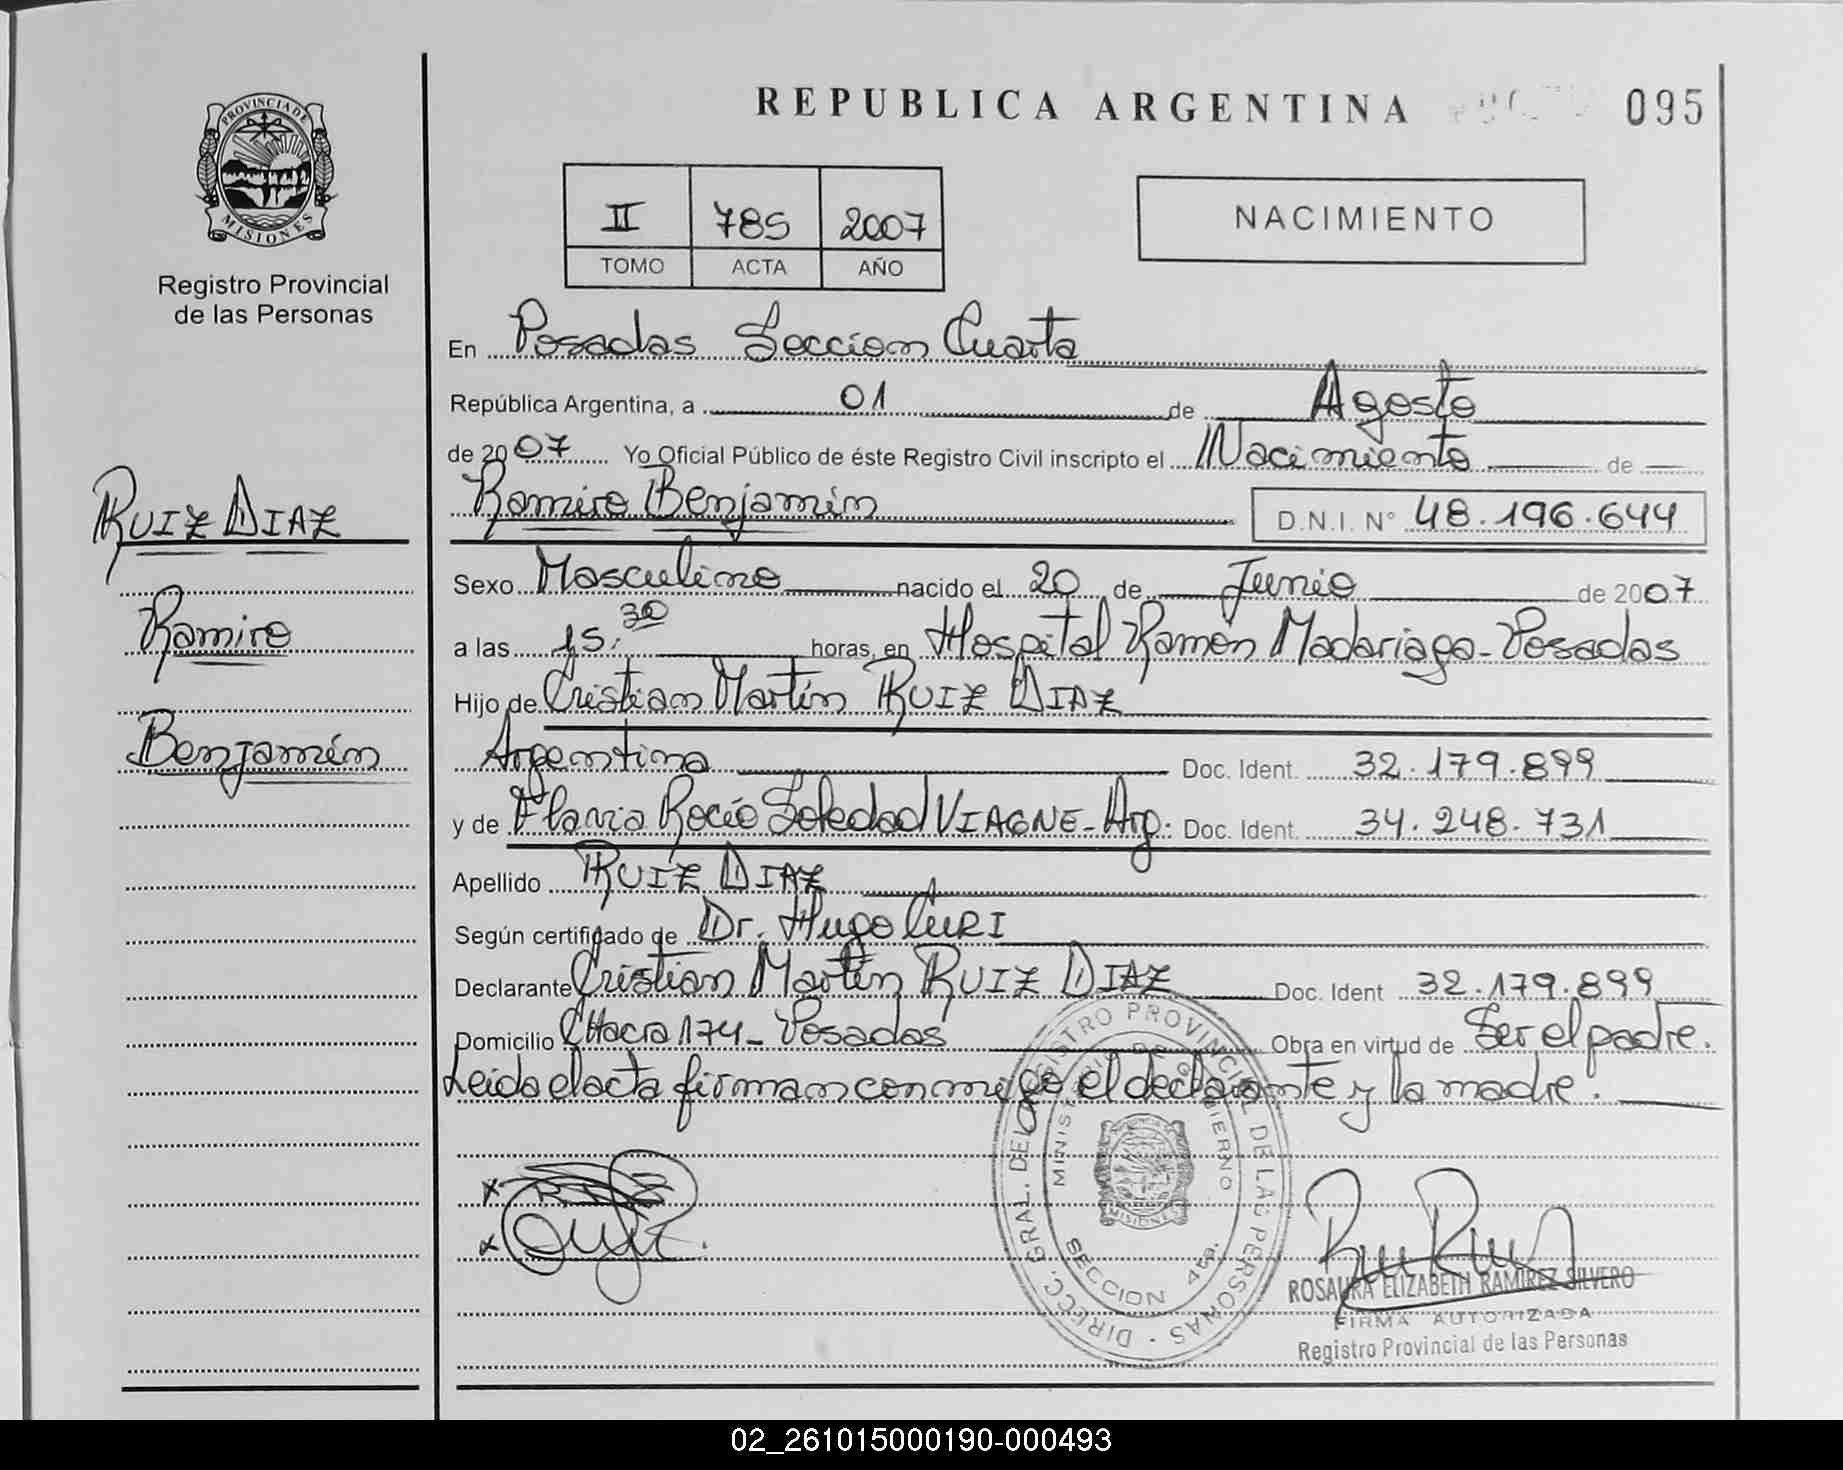 REPUBLICA ARGENTINA
095
PROVINCIA DE MISIONES
Registro Provincial
de las Personas
II 785 2007
TOMO ACTA AÑO
NACIMIENTO
RUIZ DIAZ
Ramiro
Benjamín
En Posadas Seccion Cuarta
República Argentina, a 01 de Agosto
de 2007 Yo Oficial Público de éste Registro Civil inscripto el Nacimiento de
Ramiro Benjamín D.N.I. Nº 48.196.644
Sexo Masculino nacido el 20 de Junio de 2007
a las 15:30 horas, en Hospital Ramón Madariaga - Posadas
Hijo de Cristian Martín RUIZ DIAZ
Argentina Doc. Ident. 32.179.899
y de Flavia Rocío Soledad VIAGNE - Arg. Doc. Ident. 34.248.731
Apellido RUIZ DIAZ
Según certificado de Dr. Hugo CURI
Declarante Cristian Martín RUIZ DIAZ Doc. Ident 32.179.899
Domicilio CHacra 174 - Posadas Obra en virtud de Ser el padre.
Leida el acta firman conmigo el declarante y la madre.
DIRECC. GRAL. DEL REGISTRO PROVINCIAL DE LAS PERSONAS
MINISTERIO DE GOBIERNO
SECCION 4ta.
MISIONES
ROSAURA ELIZABETH RAMIREZ SILVERO
FIRMA AUTORIZADA
Registro Provincial de las Personas
02_261015000190-000493